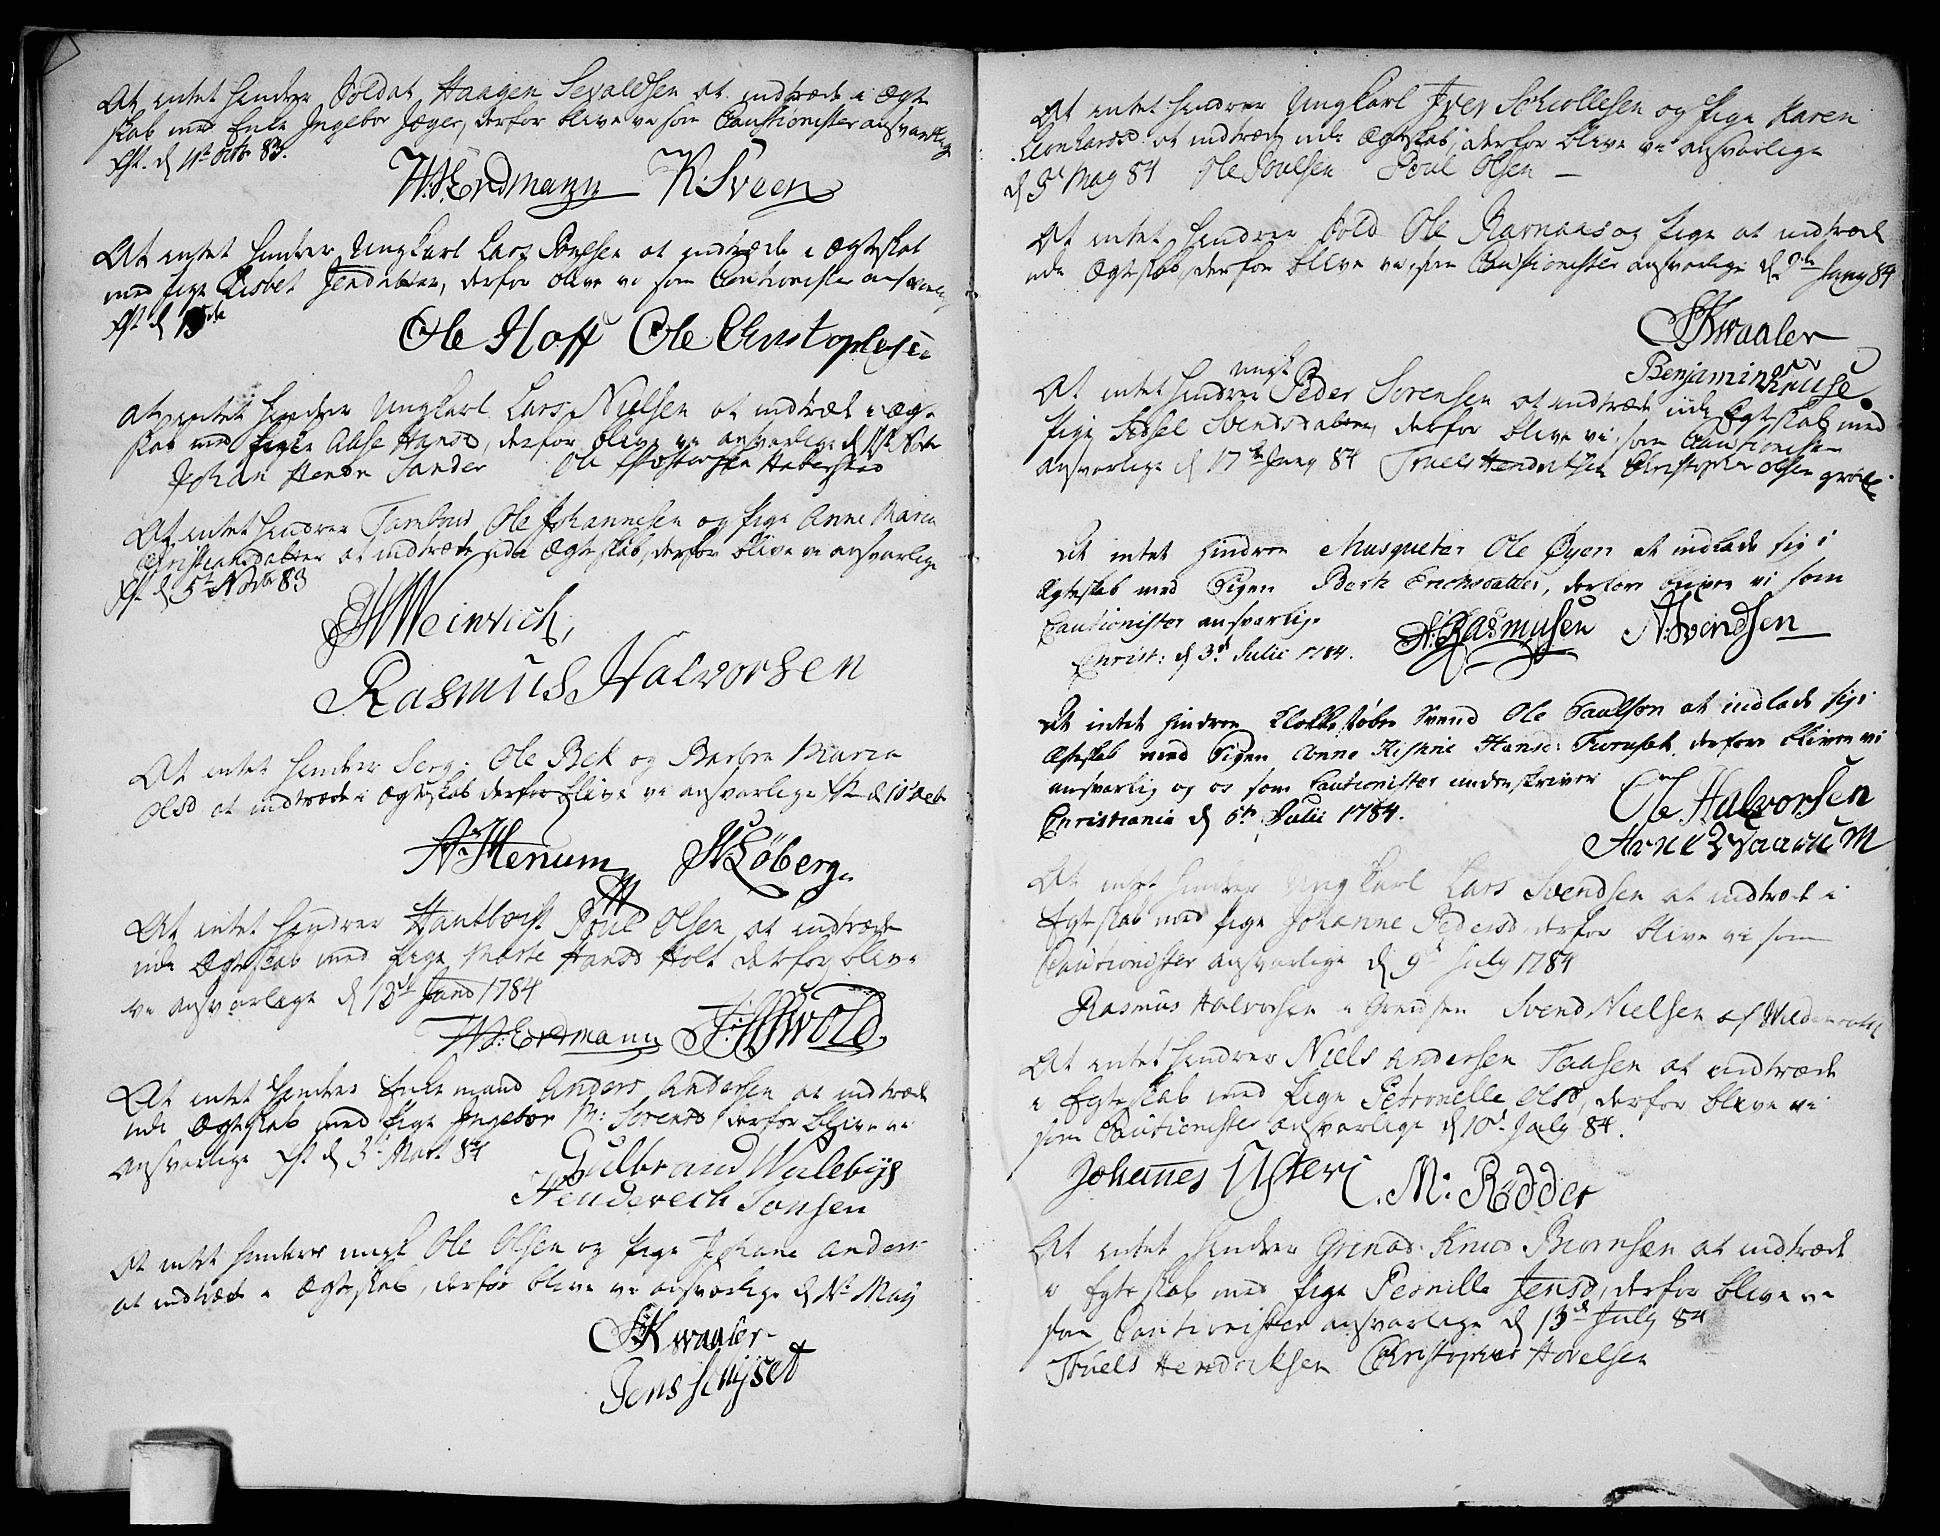 At intet hindrer Soldat Haagen Sevaldsen at indtræde i Ægte
skab med Enke Ingebor Jæger, derfor blive vi som Cautionister ansvarlig
Xst. d 11te Octb 83.
W: Erdmann K: Sveen
At intet hindrer Ungkarl Lars Poulsen at indtræde i Ægteskab
med Pige Lisbet Jensdatter, derfor blive vi som Cautionister ansvarlig
Xst d 15de
Ole Hoff Ole Christophersen
At intet hindrer Ungkarl Lars Nielsen at indtræde i Ægte
skab med Pigen Alise Hansd, derfor blive vi ansvarlige d
Johan Hendr Sander Ole Haberstad
At intet hindrer Tambour Ole Johannesen og Pige Anne Maria
Christiansdatter at indtræde udi Ægteskab, derfor blive vi ansvarlige
Xst. d 5te Novbr 83
H Weinrich,
Rasmus Halvorsen
At intet hindrer Serg: Ole Bek og Barbra Maria
Olsd at indtræde i Ægteskab derfor blive vi ansvarlige Xst d 10 Decb
A: Stenum H: Løberg.
At intet hindrer Hautboist Poul Olsen at indtræde
udi Ægteskab med Pige Marte Hansd Holt derfor blive
vi ansvarlige d 13de Janv 1784
W: Erdmann
At intet hindrer Enkemand Anders Andersen at indtræde
udi Ægteskab med Pige Ingebor M: Sørensd derfor blive vi
ansvarlige Xst d 3d Mart 84
Gulbrand Walebye
Henderech Tonsen
At intet hindrer ungk Ole Olsen og Pige Johane Anders-
at indtræde i Ægteskab, derfor blive vi ansvarlige d 1st May
Kwaaler
Jens
At intet hindrer Ungkarl Iver Schiollesen og Pige Karen
Leonhardsd at indtræde udi Ægteskab, derfor blive vi ansvarlige
d 3d May 84 Ole Poulsen Poul Olsen
At intet hindrer Sold Ole Ramaas og Pige at indtræde
udi Ægteskab, derfor blive vi som Cautionister ansvarlige d 2de Juny 84
Kwaaler
Benjamin Kruse
At intet hindrer ungk Peder Sørensen at indtræde udi Egteskab med
Pige Sidsel Svendsdatter, derfor blive vi som Cautionister
ansvarlige d 17de Juny 84 Truels Hendriksen Christopher Olsen
At intet hindrer Musqueter Ole Øyen at indlade sig i
Ægteskab med Pigen Berte Erichsdatter, derfore bliver vi som
Cautionister ansvarlig.
Christ: d 3d Julii 1784. A: Rasmusen A: Svendsen
At intet hindrer Klokkestøber Svend Ole Paulson at indlade sig i
Ægteskab med Pigen Anne Kistine Hansd: derfore bliver vi
ansvarlig og os som Cautionister underskriver
Christiania d 6te Julii 1784.
Ole Halvorsen
Arne
At intet hindrer Ungkarl Lars Svendsen at indtræde i
Egteskab med Pige Johanne Pedersd derfor blive vi som
Cautionister ansvarlige d 9d July 1784
Rasmus Halvorsen i Grendsen Svend Nielsen af
At intet hindrer Niels Andersen Taasen at indtræde
i Egteskab med Pige Petronelle Olsd, derfor blive vi
som Cautionister ansvarlige d 10d July 84.
Johannes C. M: Rödder
At intet hindrer Grenad: Knud Biørnsen at indtræde
i Egteskab med Pige Pernille Jensd, derfor blive vi
som Cautionister ansvarlige d 13d July 84
Truels Hendriksen Christopher Hovelsen